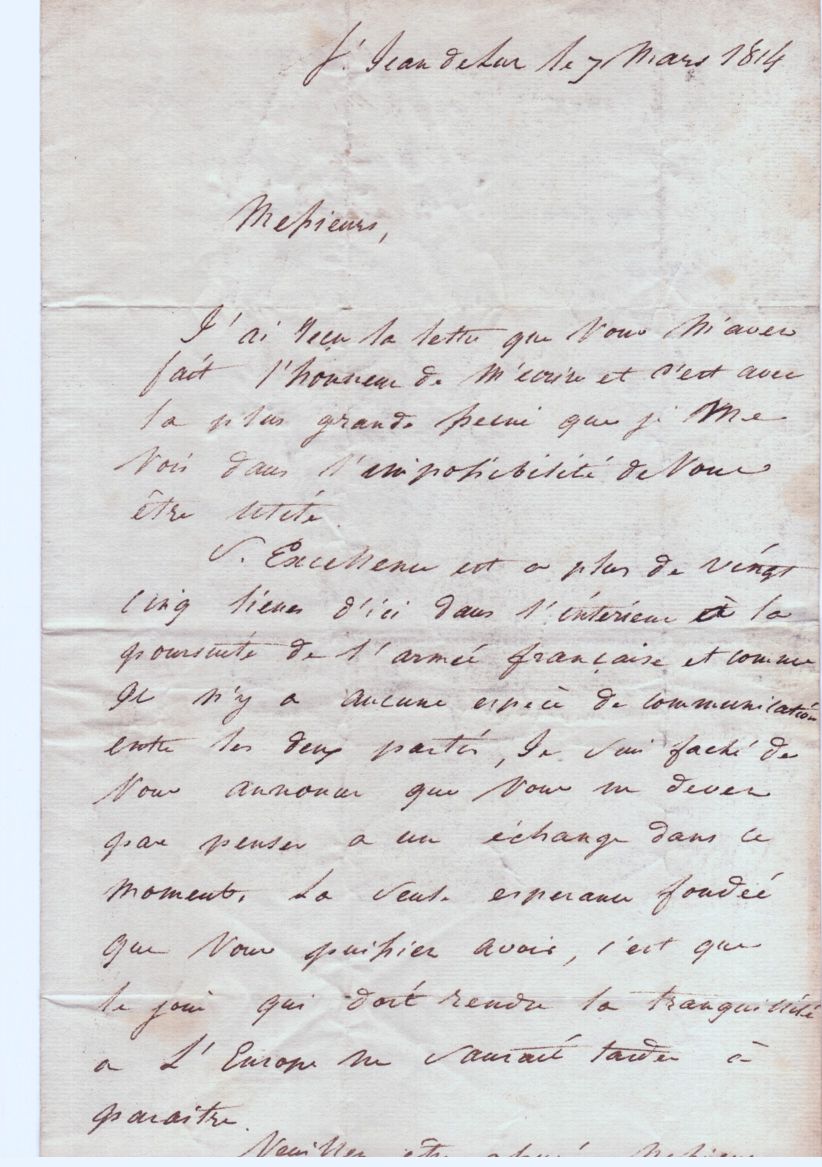 St Jean de Luz le 7 Mars 1814
Messieurs,
J'ai reçu la lettre que Vous M'avez
fait l'honneur de M'écrire et c'est avec
la plus grande peine que je Me
Vois dans l'impossibilité de Vous
être utile.
S. Excellence est a plus de vingt
cinq lieues d'ici dans l'intérieur à la
poursuite de l'armée française et comme
Il n'y a aucune espèce de communication
entre les deux partis, Je suis faché de
Vous annoncer que Vous ne devez
pas penser a un échange dans ce
moment. La seule esperance fondée
que Vous puissiez avoir, c'est que
le jour qui doit rendre la tranquillité
a L'Europe ne saurait tarder à
paraitre.
Veuillez être assuré, Messieurs